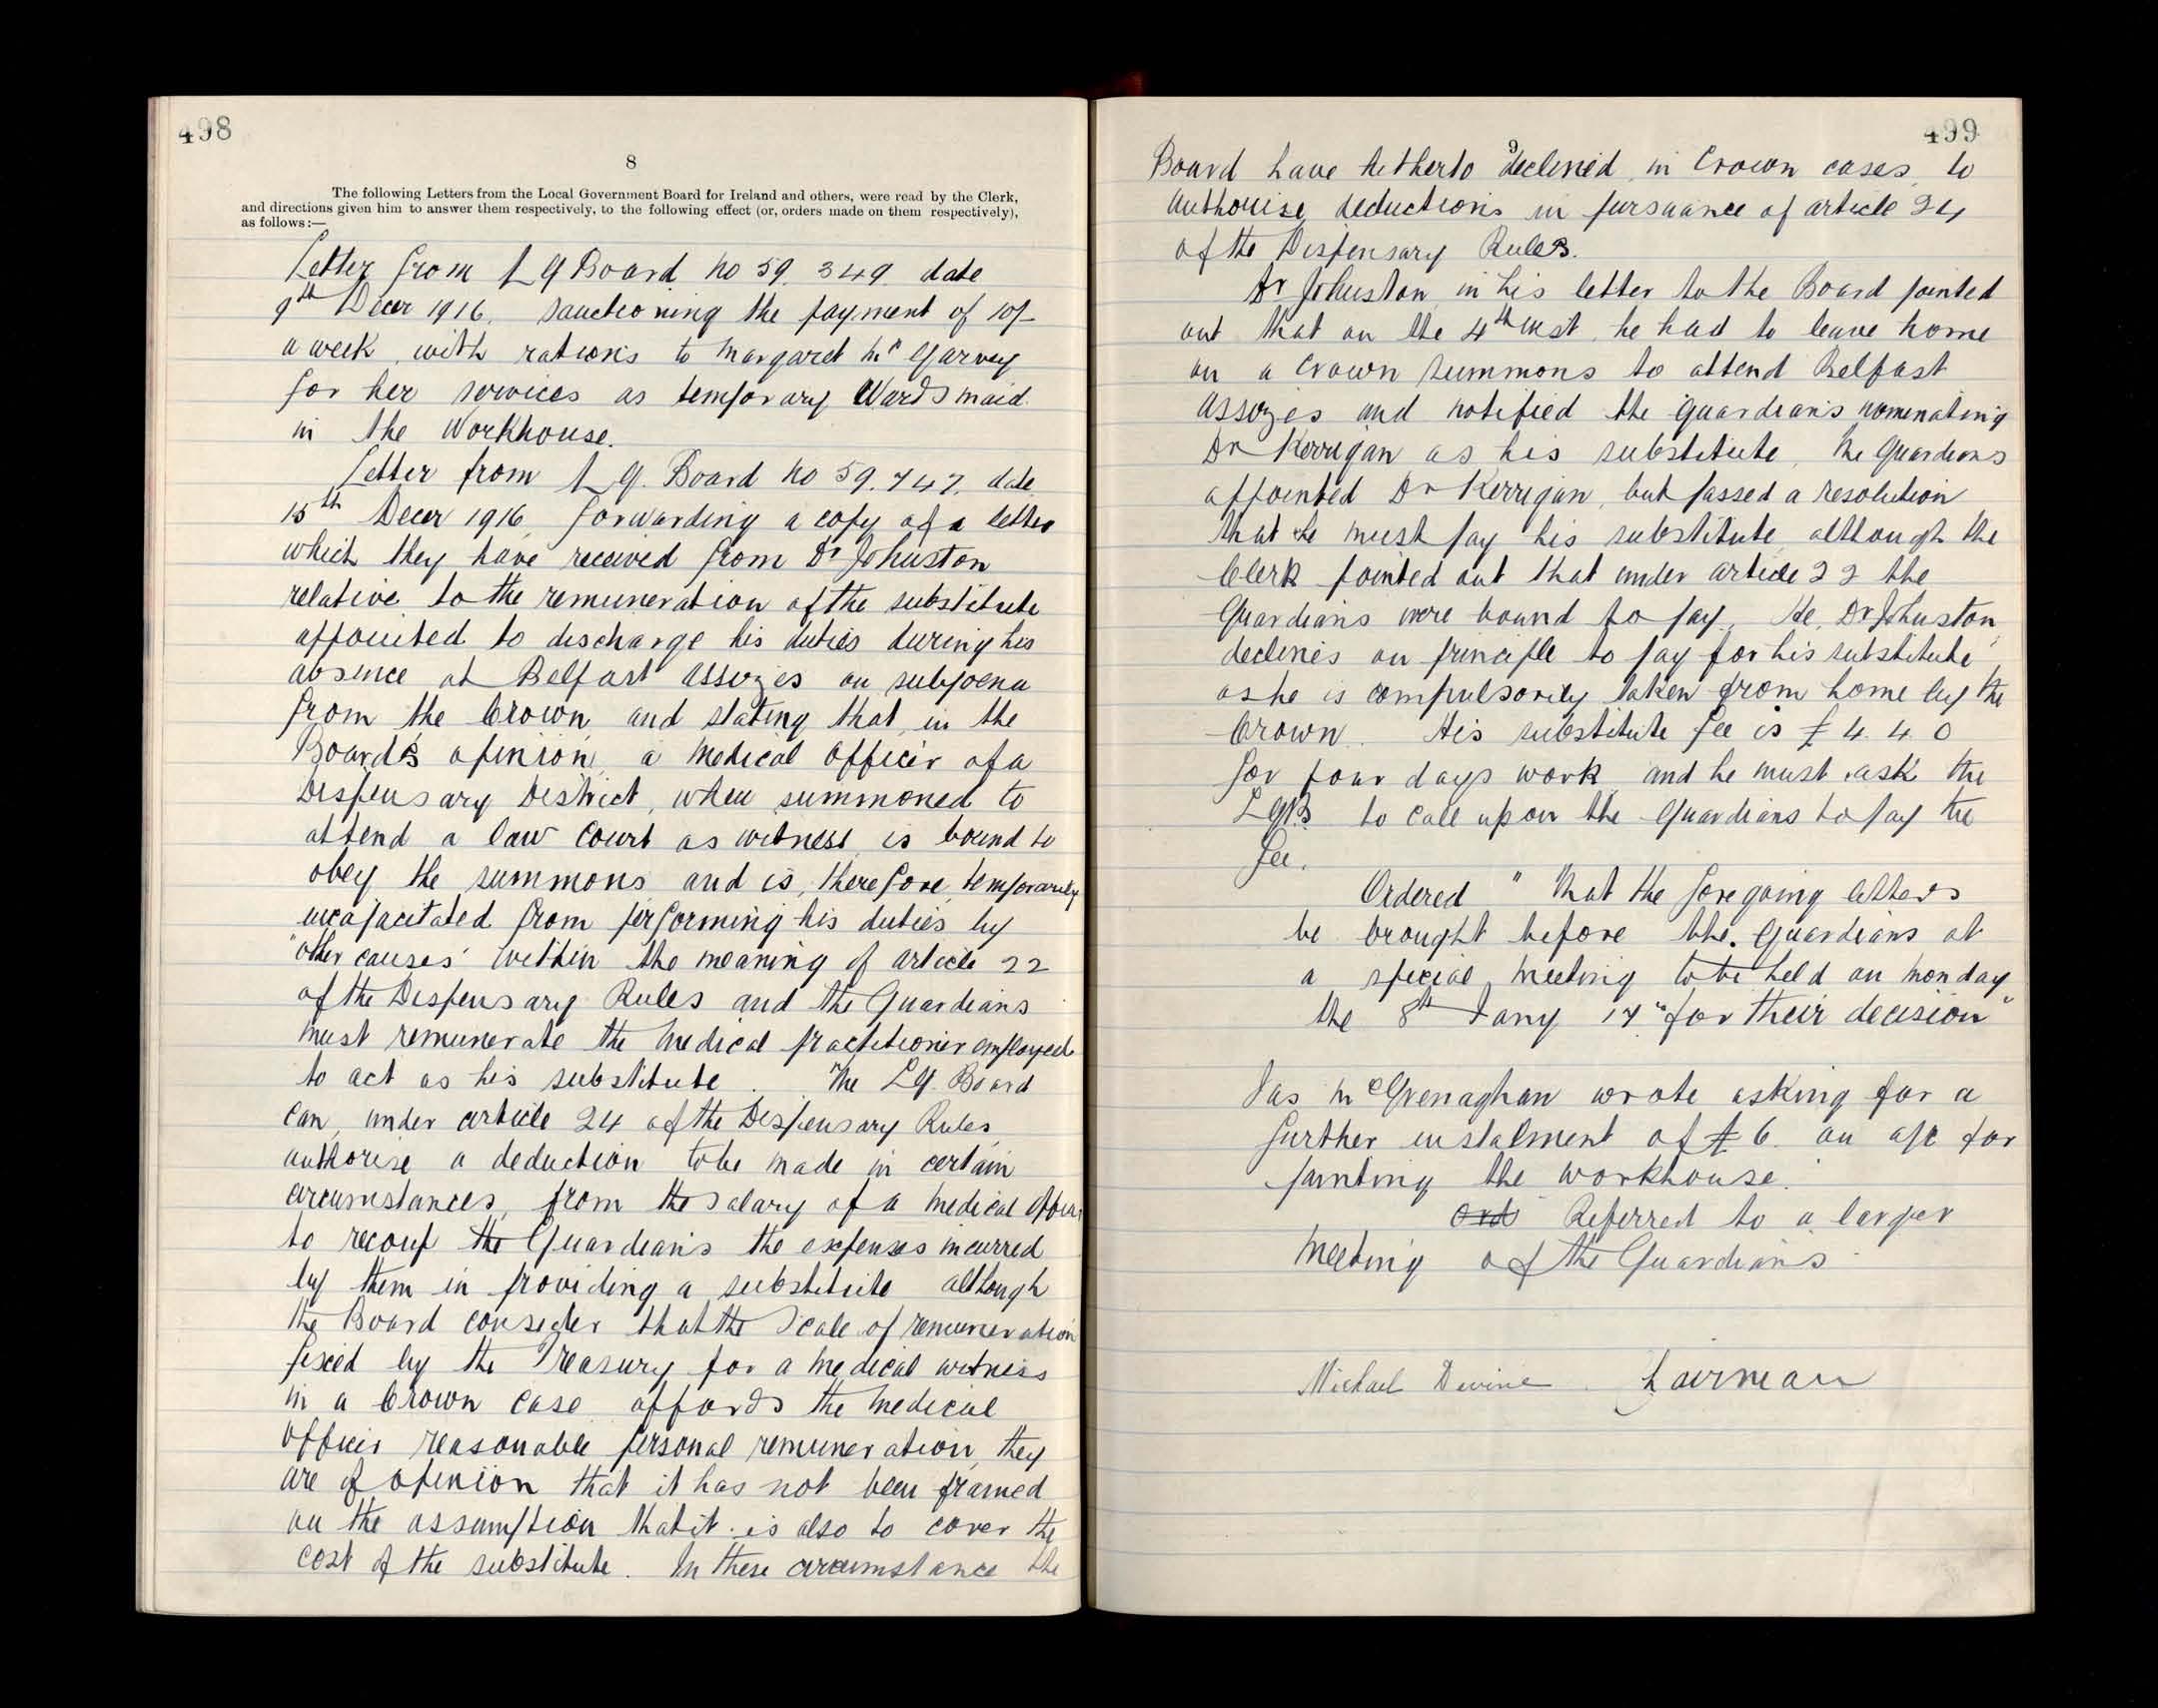 498
8
The following Letters from the Local Government Board for Ireland and others, were read by the Clerk,
and directions given him to answer them respectively, to the following effect (or, orders made on them respectively),
as follows:—
Letter from L G Board no 59.349. date
9th Decer 1916, sanctioning the payment of 10/-
a week, with rations to Margaret McGarvey
for her services as temporary Wardsmaid
in the Workhouse.
Letter from L.G. Board no 59.747. date
15th Decer 1916, forwarding a copy of a letter
which they have received from Dr Johnston
relative to the remuneration of the substitute
appointed to discharge his duties during his
absence at Belfast Assizes on subpoena
from the Crown, and stating that, in the
Board's opinion, a Medical Officer of a
Dispensary District, when summoned to
attend a law Court as witness, is bound to
obey the summons and is, therefore, temporarily
incapacitated from performing his duties by
"other causes" within the meaning of article 22
of the Dispensary Rules and the Guardians
must remunerate the Medical practitioner employed
to act as his substitute. The L.G. Board
can, under article 24 of the Dispensary Rules,
authorise a deduction to be made in certain
circumstances, from the salary of a Medical Officer
to recoup the Guardians the expenses incurred
by them in providing a substitute although
the Board consider that the Scale of remuneration
fixed by the Treasury for a Medical witness
in a Crown case affords the Medical
Officer reasonable personal remuneration, they
are of opinion that it has not been framed
on the assumption that it is also to cover the
cost of the substitute. In these circumstance the
499
9
Board have hitherto declined, in Crown cases, to
authorise deductions in pursuance of article 24
of the Dispensary Rules.
Dr Johnston in his letter to the Board pointed
out that on the 4th inst. he had to leave home
on a Crown summons to attend Belfast
Assizes and notified the Guardians nominating
Dr Kerrigan as his substitute. The Guardians
appointed Dr Kerrigan, but passed a resolution
that he must pay his substitute although the
Clerk pointed out that under article 22 the
Guardians were bound to pay. He, Dr Johnston,
declines on principle to pay for his substitute
as he is compulsorily taken from home by the
Crown. His substitute fee is £4.4.0
for four days work and he must ask the
LGB to call upon the Guardians to pay the
fee.
Ordered "That the foregoing letters
be brought before the Guardians at
a special meeting to be held on Monday
the 8th Jany 17 "for their decision"
Jas McGrenaghan wrote asking for a
further instalment of £6 on a/c for
painting the workhouse.
Ord Referred to a larger
Meeting of the Guardians
Michael Devine Chairman